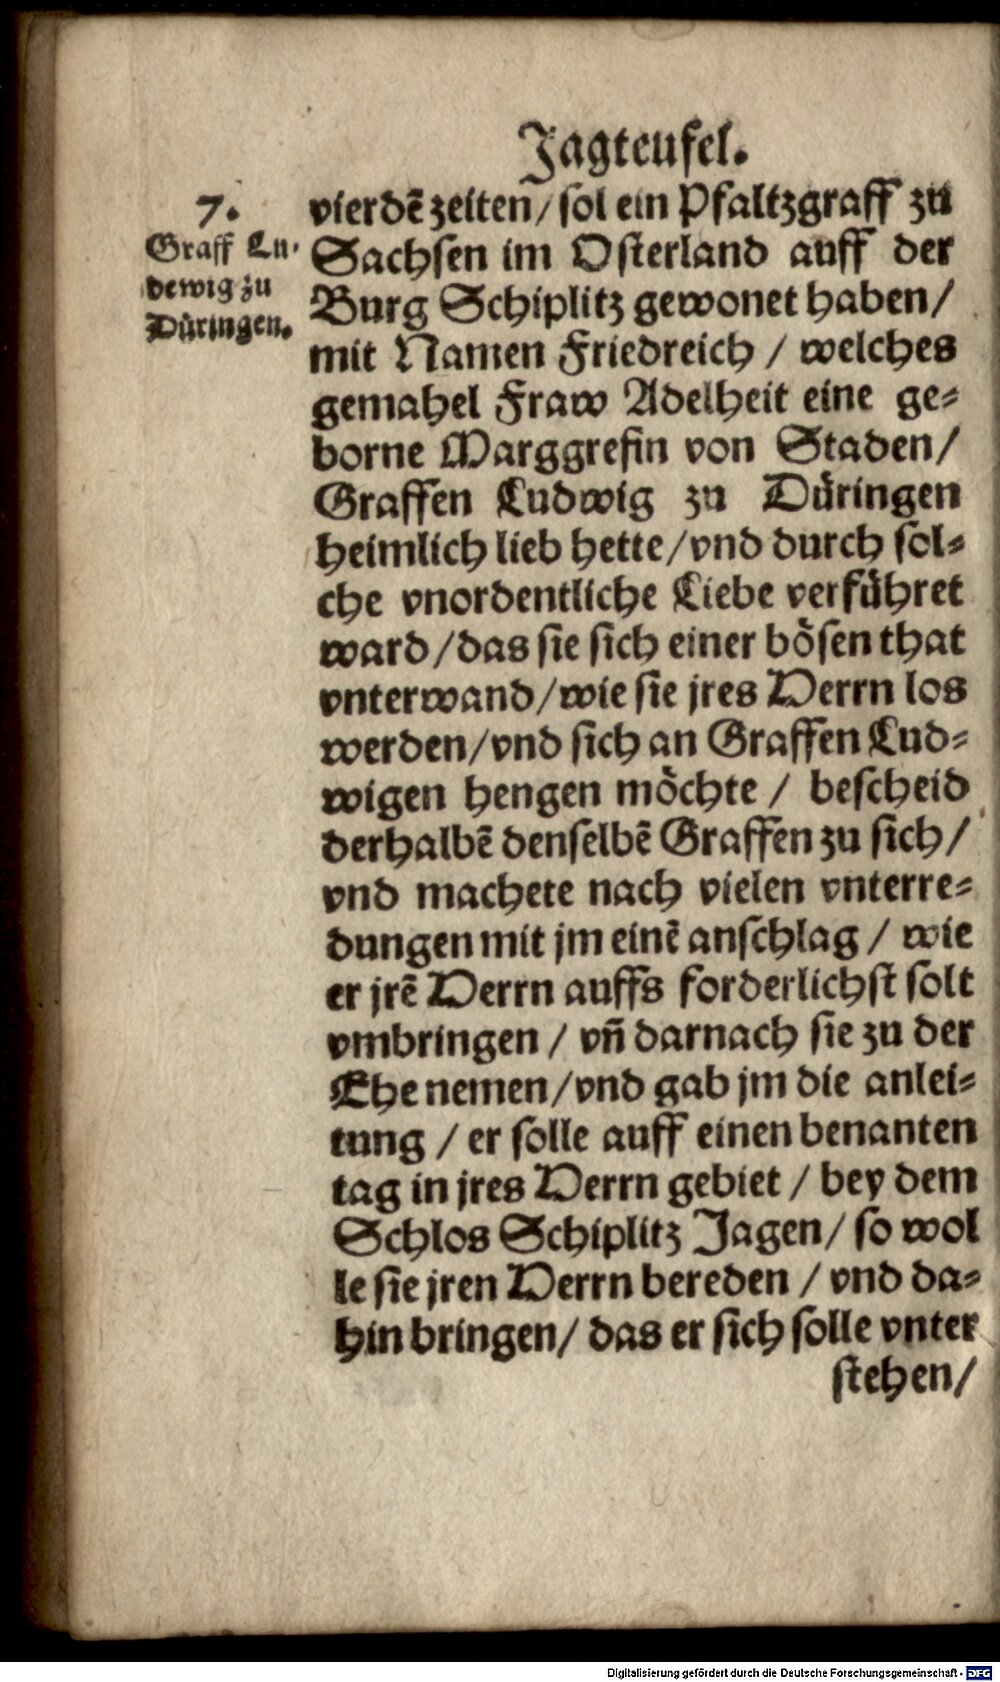 Jagteufel.
7.
Graff Lu-
dewig zu
Düringen.
vierdē zeiten/ sol ein Pfaltzgraff zu
Sachsen im Osterland auff der
Burg Schiplitz gewonet haben/
mit Namen Friedreich / welches
gemahel Fraw Adelheit eine ge-
borne Marggrefin von Staden/
Graffen Ludwig zu Düringen
heimlich lieb hette/vnd durch sol-
che vnordentliche Liebe verführet
ward/das sie sich einer bösen that
vnterwand/wie sie jres Herrn los
werden/vnd sich an Graffen Lud-
wigen hengen möchte / bescheid
derhalbē denselbē Graffen zu sich/
vnd machete nach vielen vnterre-
dungen mit jm einē anschlag / wie
er jrē Herrn auffs forderlichst solt
vmbringen / vn̄ darnach sie zu der
Ehe nemen/vnd gab jm die anlei-
tung / er solle auff einen benanten
tag in jres Herrn gebiet / bey dem
Schlos Schiplitz Jagen/ so wol
le sie jren Herrn bereden / vnd da-
hin bringen/ das er sich solle vnter
stehen/
Digitalisierung gefördert durch die Deutsche Forschungsgemeinschaft - DFG